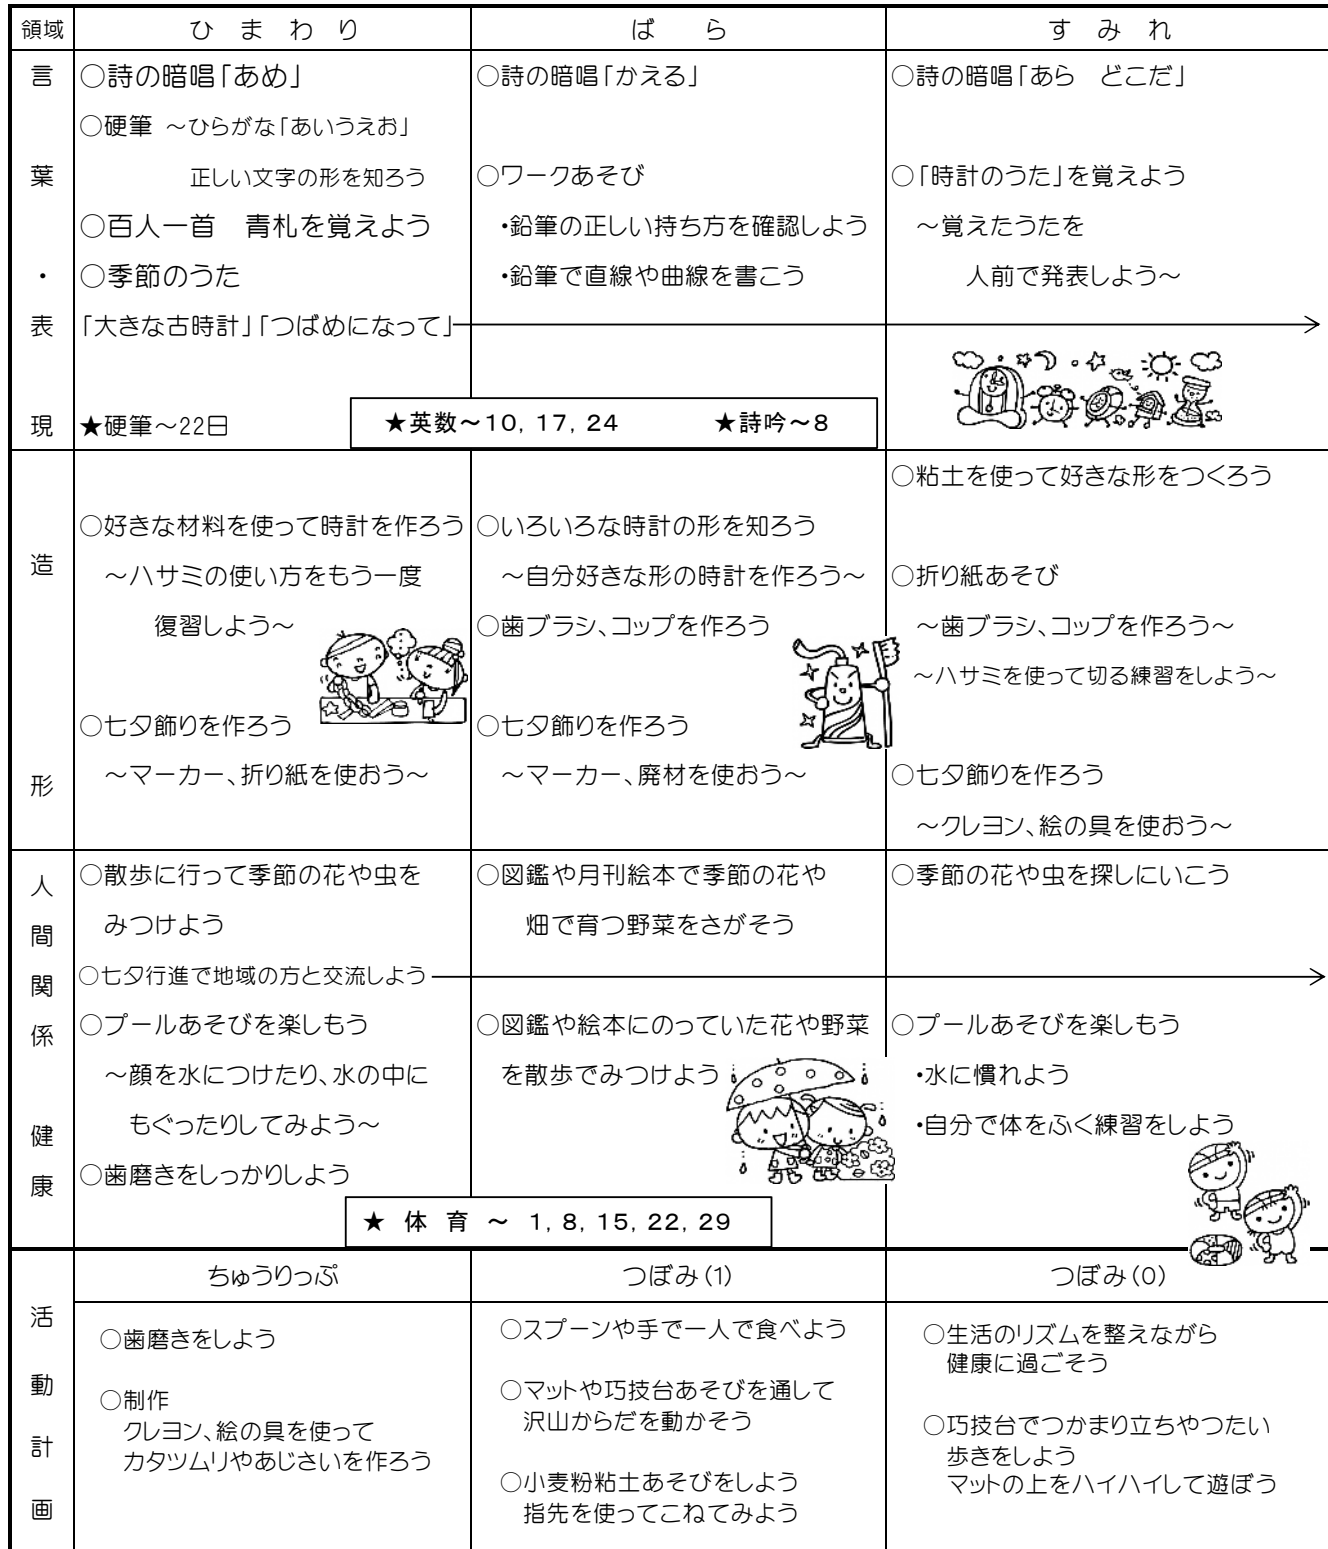 領域 ひまわり ばら すみれ
言葉・表現
○詩の暗唱「あめ」
○硬筆 ～ひらがな「あいうえお」
正しい文字の形を知ろう
○百人一首 青札を覚えよう
○季節のうた
「大きな古時計」「つばめになって」
★硬筆～22日
○詩の暗唱「かえる」
○ワークあそび
・鉛筆の正しい持ち方を確認しよう
・鉛筆で直線や曲線を書こう
○詩の暗唱「あら どこだ」
○「時計のうた」を覚えよう
～覚えたうたを
人前で発表しよう～
★英数～10, 17, 24 ★詩吟～8
造形
○好きな材料を使って時計を作ろう
～ハサミの使い方をもう一度
復習しよう～
○七夕飾りを作ろう
～マーカー、折り紙を使おう～
○いろいろな時計の形を知ろう
～自分好きな形の時計を作ろう～
○歯ブラシ、コップを作ろう
○七夕飾りを作ろう
～マーカー、廃材を使おう～
○粘土を使って好きな形をつくろう
○折り紙あそび
～歯ブラシ、コップを作ろう～
～ハサミを使って切る練習をしよう～
○七夕飾りを作ろう
～クレヨン、絵の具を使おう～
人間関係 健康
○散歩に行って季節の花や虫を
みつけよう
○七夕行進で地域の方と交流しよう
○プールあそびを楽しもう
～顔を水につけたり、水の中に
もぐったりしてみよう～
○歯磨きをしっかりしよう
○図鑑や月刊絵本で季節の花や
畑で育つ野菜をさがそう
○図鑑や絵本にのっていた花や野菜
を散歩でみつけよう
○季節の花や虫を探しにいこう
○プールあそびを楽しもう
・水に慣れよう
・自分で体をふく練習をしよう
★ 体 育 ～ 1, 8, 15, 22, 29
活動計画
ちゅうりっぷ つぼみ(1) つぼみ(0)
○歯磨きをしよう
○制作
クレヨン、絵の具を使って
カタツムリやあじさいを作ろう
○スプーンや手で一人で食べよう
○マットや巧技台あそびを通して
沢山からだを動かそう
○小麦粉粘土あそびをしよう
指先を使ってこねてみよう
○生活のリズムを整えながら
健康に過ごそう
○巧技台でつかまり立ちやつたい
歩きをしよう
マットの上をハイハイして遊ぼう